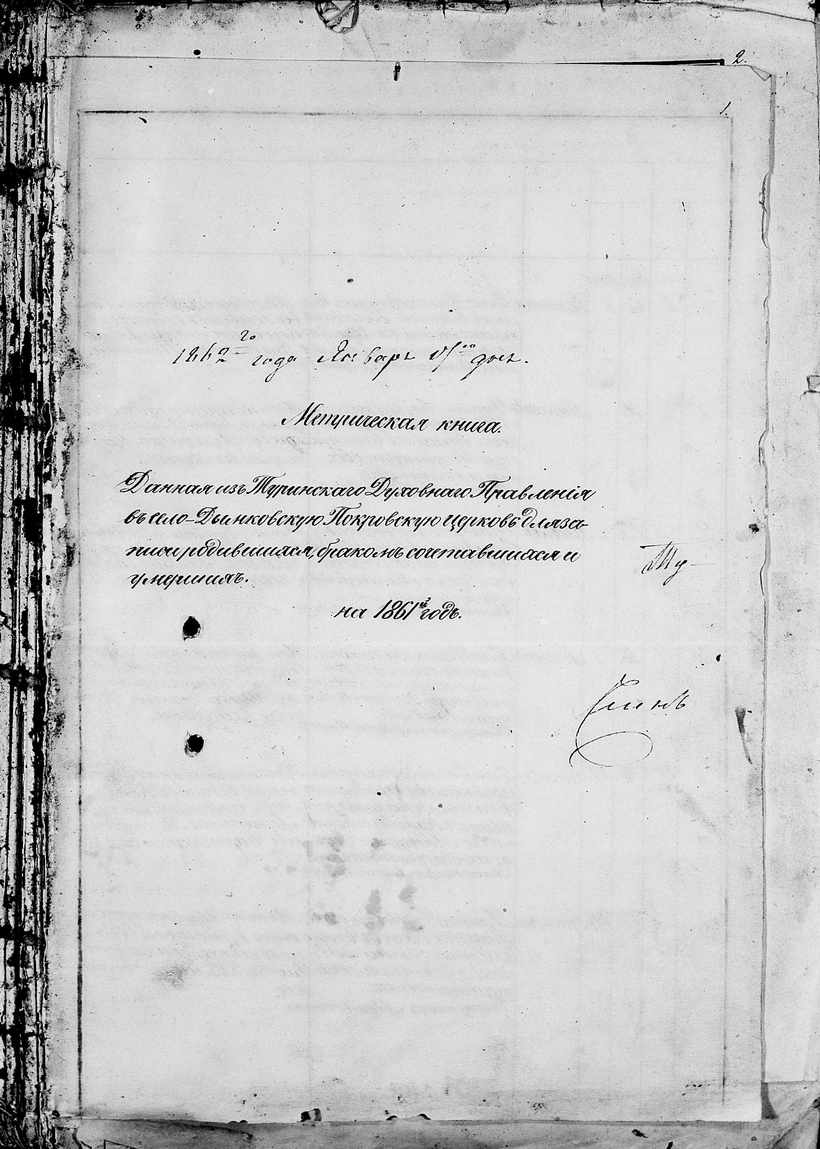 2.
1.
1862го года Январь дня.
Метрическая книга.
Данная изъ Туринскаго Духовнаго Правленія
въ село-Дымковскую Покровскую церковь для за-
писи родившихся, бракомъ сочетавшихся и
умершихъ.
на 1861й годъ.
Ту-